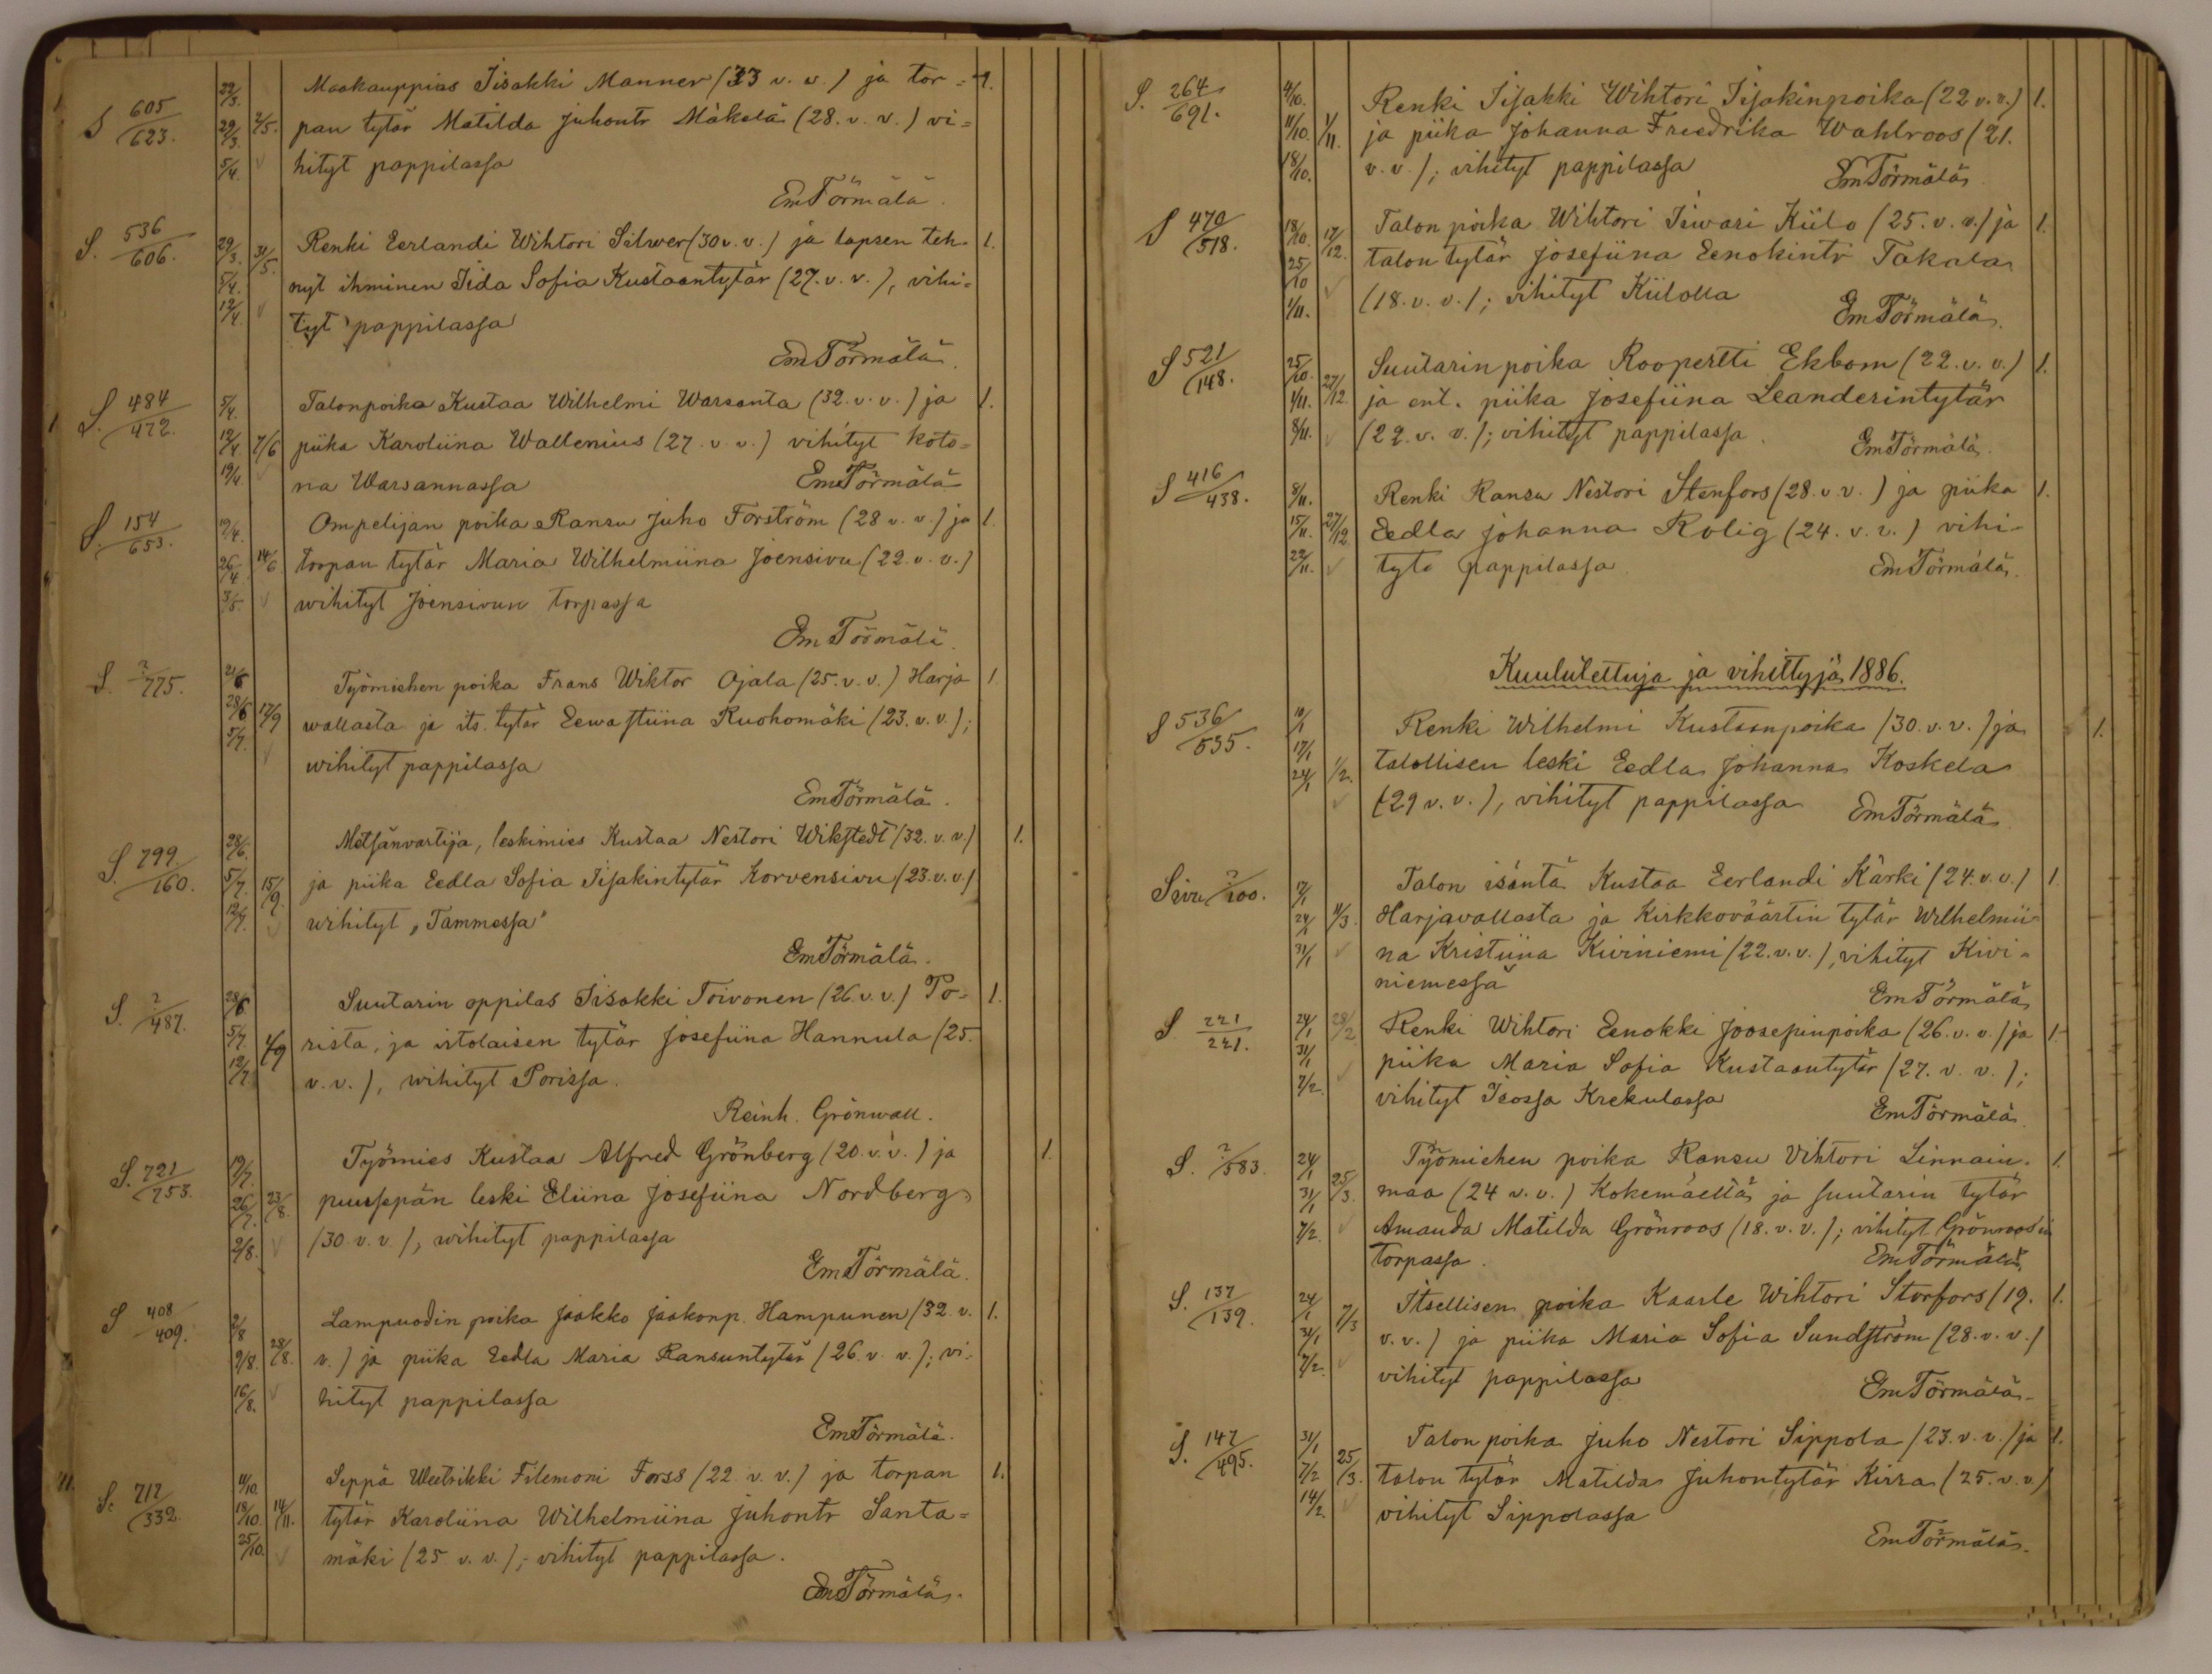 S 605/623. 22/3. 29/3. 5/4. 2/5. Maakauppias Iisakki Manner (33 v. v.) ja tor= 1.
pan tytär Matilda Juhontr Mäkelä (28. v. v.) vi=
hityt pappilassa
Em Törmälä.
S. 536/606. 29/3. 5/4. 12/4. 31/5. Renki Eerlandi Wihtori Silwer (30 v. v.) ja lapsen teh- 1.
nyt ihminen Iida Sofia Kustaantytär (27. v. v.), vihi=
tyt pappilassa
Em Törmälä.
S. 484/472. 5/4. 12/4. 19/4 7/6 Talonpoika Kustaa Wilhelmi Warsanta (32. v. v.) ja 1.
piika Karoliina Wallenius (27. v. v.) vihityt koto=
na Warsannassa
Em Törmälä
S. 154/653. 19/4. 26/4. 3/5. 14/6 Ompelijan poika Ransu Juho Forström (28 v. v.) ja 1.
torpan tytär Maria Wilhelmiina Joensivu (22. v. v.)
wihityt Joensivun torpassa
Em Törmälä.
S. ?/775. 21/6 28/6 5/7. 17/9 Työmiehen poika Frans Wiktor Ojala (25. v. v.) Harja 1.
wallasta ja its. tytär Eewa Stiina Ruohomäki (23. v. v.);
wihityt pappilassa
Em Törmälä.
S. 799/160. 28/6. 5/7. 12/7. 15/9. Metsänvartija, leskimies Kustaa Nestori Wikstedt (32. v. v.) 1.
ja piika Eedla Sofia Iisakintytär Korvensivu (23. v. v.)
wihityt „Tammessa"
Em Törmälä.
S. ?/487. 28/6 5/7. 12/7. 4/9 Suutarin oppilas Iisakki Toivonen (26. v. v.) Po= 1.
rista, ja irtolaisen tytär Josefiina Hannula (25.
v. v.), wihityt Porissa.
Reinh. Grönwall.
S. 721/753. 19/7. 26/7. 2/8. 23/8. Työmies Kustaa Alfred Grönberg (20. v. v.) ja 1.
puusepän leski Eliina Josefiina Nordberg
(30 v. v.), wihityt pappilassa
Em Törmälä.
S 408/409. 2/8 9/8. 16/8. 28/8. Lampuodin poika Jaakko Jaakonp. Hampunen (32. v. 1.
v.) ja piika Eedla Maria Ransuntytär (26. v. v.); vi=
hityt pappilassa
Em Törmälä.
S. 717/332. 11/10. 18/10. 25/10. 14/11. Seppä Weetrikki Filemoni Forss (22. v. v.) ja torpan 1.
tytär Karoliina Wilhelmiina Juhontr Santa=
mäki (25 v. v.); vihityt pappilassa.
Em Törmälä.
S. 264/691. 4/10. 11/10. 18/10. 1/11. Renki Iisakki Wihtori Iisakinpoika (22 v. v.) 1.
ja piika Johanna Freedrika Wahlroos (21.
v. v.); vihityt pappilassa
Em Törmälä.
S 470/518. 18/10. 25/10 1/11. 17/12. Talon poika Wihtori Iivari Kiilo (25. v. v.) ja 1.
talon tytär Josefiina Eenokintr Takala
(18. v. v.); vihityt Kiilolla
Em Törmälä.
S 521/148. 25/10. 1/11. 8/11. 27/12. Suutarin poika Roopertti Ekbom (22. v. v.) 1.
ja ent. piika Josefiina Leanderintytär
(22. v. v.); vihityt pappilassa.
Em Törmälä.
S 416/438. 8/11. 15/11. 22/11. 27/12. Renki Ransu Nestori Stenfors (28. v. v.) ja piika 1.
Eedla Johanna Rolig (24. v. v.) vihi-
tyt pappilassa
Em Törmälä.
Kuulutettuja ja vihittyjä 1886.
S 536/535. 10/1 17/1 24/1 1/2. Renki Wilhelmi Kustaanpoika (30. v. v.) ja 1.
talollisen leski Eedla Johanna Koskela
(29 v. v.), vihityt pappilassa
Em Törmälä
Sivu ?/200. 17/1 24/1 31/1 11/3. Talon isäntä Kustaa Eerlandi Kärki (24. v. v.) 1.
Harjavallasta ja Kirkkoväärtin tytär Wilhelmii-
na Kristiina Kiviniemi (22. v. v.), vihityt Kivi-
niemessä
Em Törmälä
S 221/221. 24/1 31/1 7/2. 28/2 Renki Wihtori Eenokki Joosepinpoika (26. v. v.) ja 1.
piika Maria Sofia Kustaantytär (27. v. v.);
vihityt Isossa Krekulassa
Em Törmälä
S. ?/583. 24/1 31/1 7/2. 25/3. Työmiehen poika Ransu Vihtori Linnain- 1.
maa (24 v. v.) Kokemäeltä ja suutarin tytär
Amanda Matilda Grönroos (18. v. v.); vihityt Grönroosin
torpassa.
Em Törmälä.
S. 137/139. 24/1 31/1 7/2. 7/3 Itsellisen poika Kaarle Wihtori Storfors (19. 1.
v. v.) ja piika Maria Sofia Sundström (28. v. v.)
vihityt pappilassa
Em Törmälä.
S. 147/495. 31/1 7/2 14/2. 25/3. Talon poika Juho Nestori Sippola (23. v. v.) ja 1.
talon tytär Matilda Juhontytär Kirra (25. v. v.)
vihityt Sippolassa
Em Törmälä.